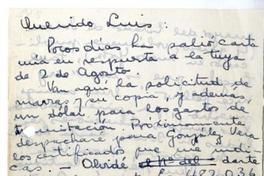 Querido Luis:
Pocos días, ha salió carta
mía en respuesta a la tuya
de 2 de Agosto.
Van aquí la solicitud de
marras y su copia y además,
un dólar para los gastos de
tramitación. Próximamente
despacharé González Vera
los certificados que me indi-
cas. — Olvidé el Nº del darte
482.036